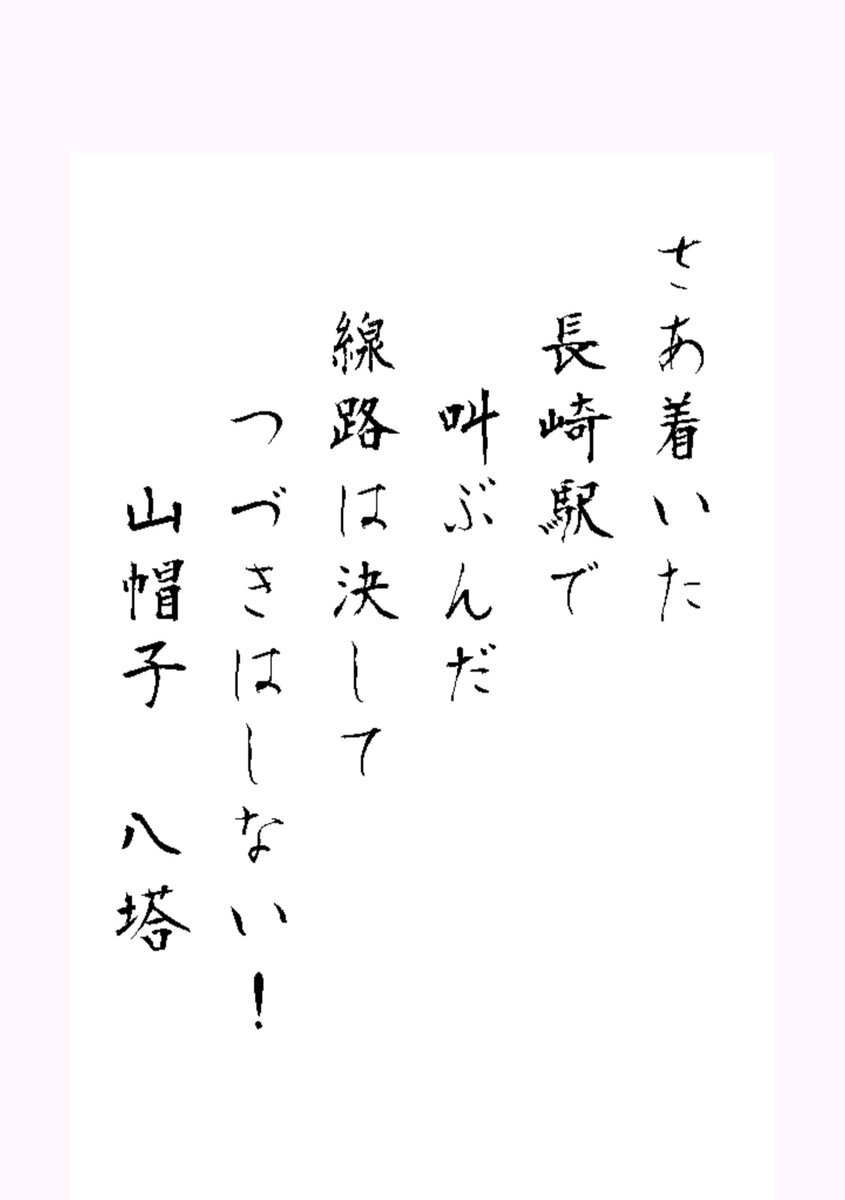 さあ着いた
長崎駅で
叫ぶんだ
線路は決して
つづきはしない！
山帽子　八塔